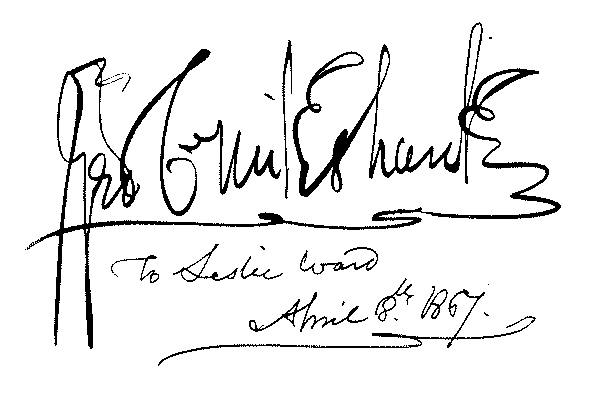 Geo Cruikshank
To Leslie Ward
April 8th 1867.